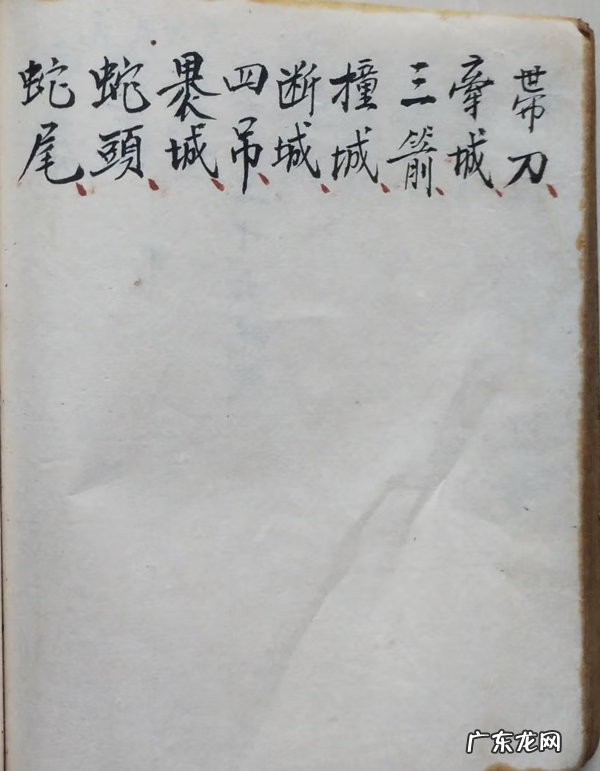 帶刀、
牽城、
三箭、
撞城、
断城、
四吊、
裹城、
蛇頭、
蛇尾、
广东龙网